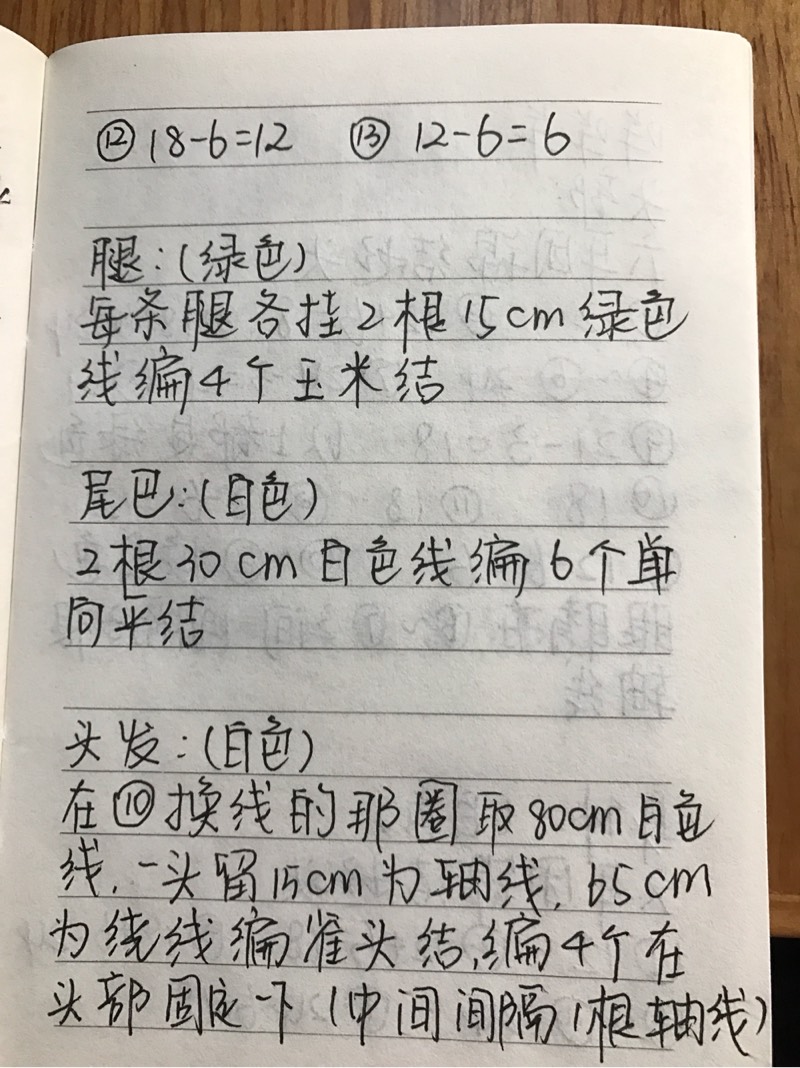 ⑫ 18-6=12 ⑬ 12-6=6
腿:(绿色)
每条腿各挂2根15cm绿色
线编4个玉米结
尾巴:(白色)
2根30cm白色线编6个单
向平结
头发:(白色)
在⑩换线的那圈取80cm白色
线,一头留15cm为轴线,65cm
为绕线编雀头结,编4个在
头部固定一下(中间间隔1根轴线)